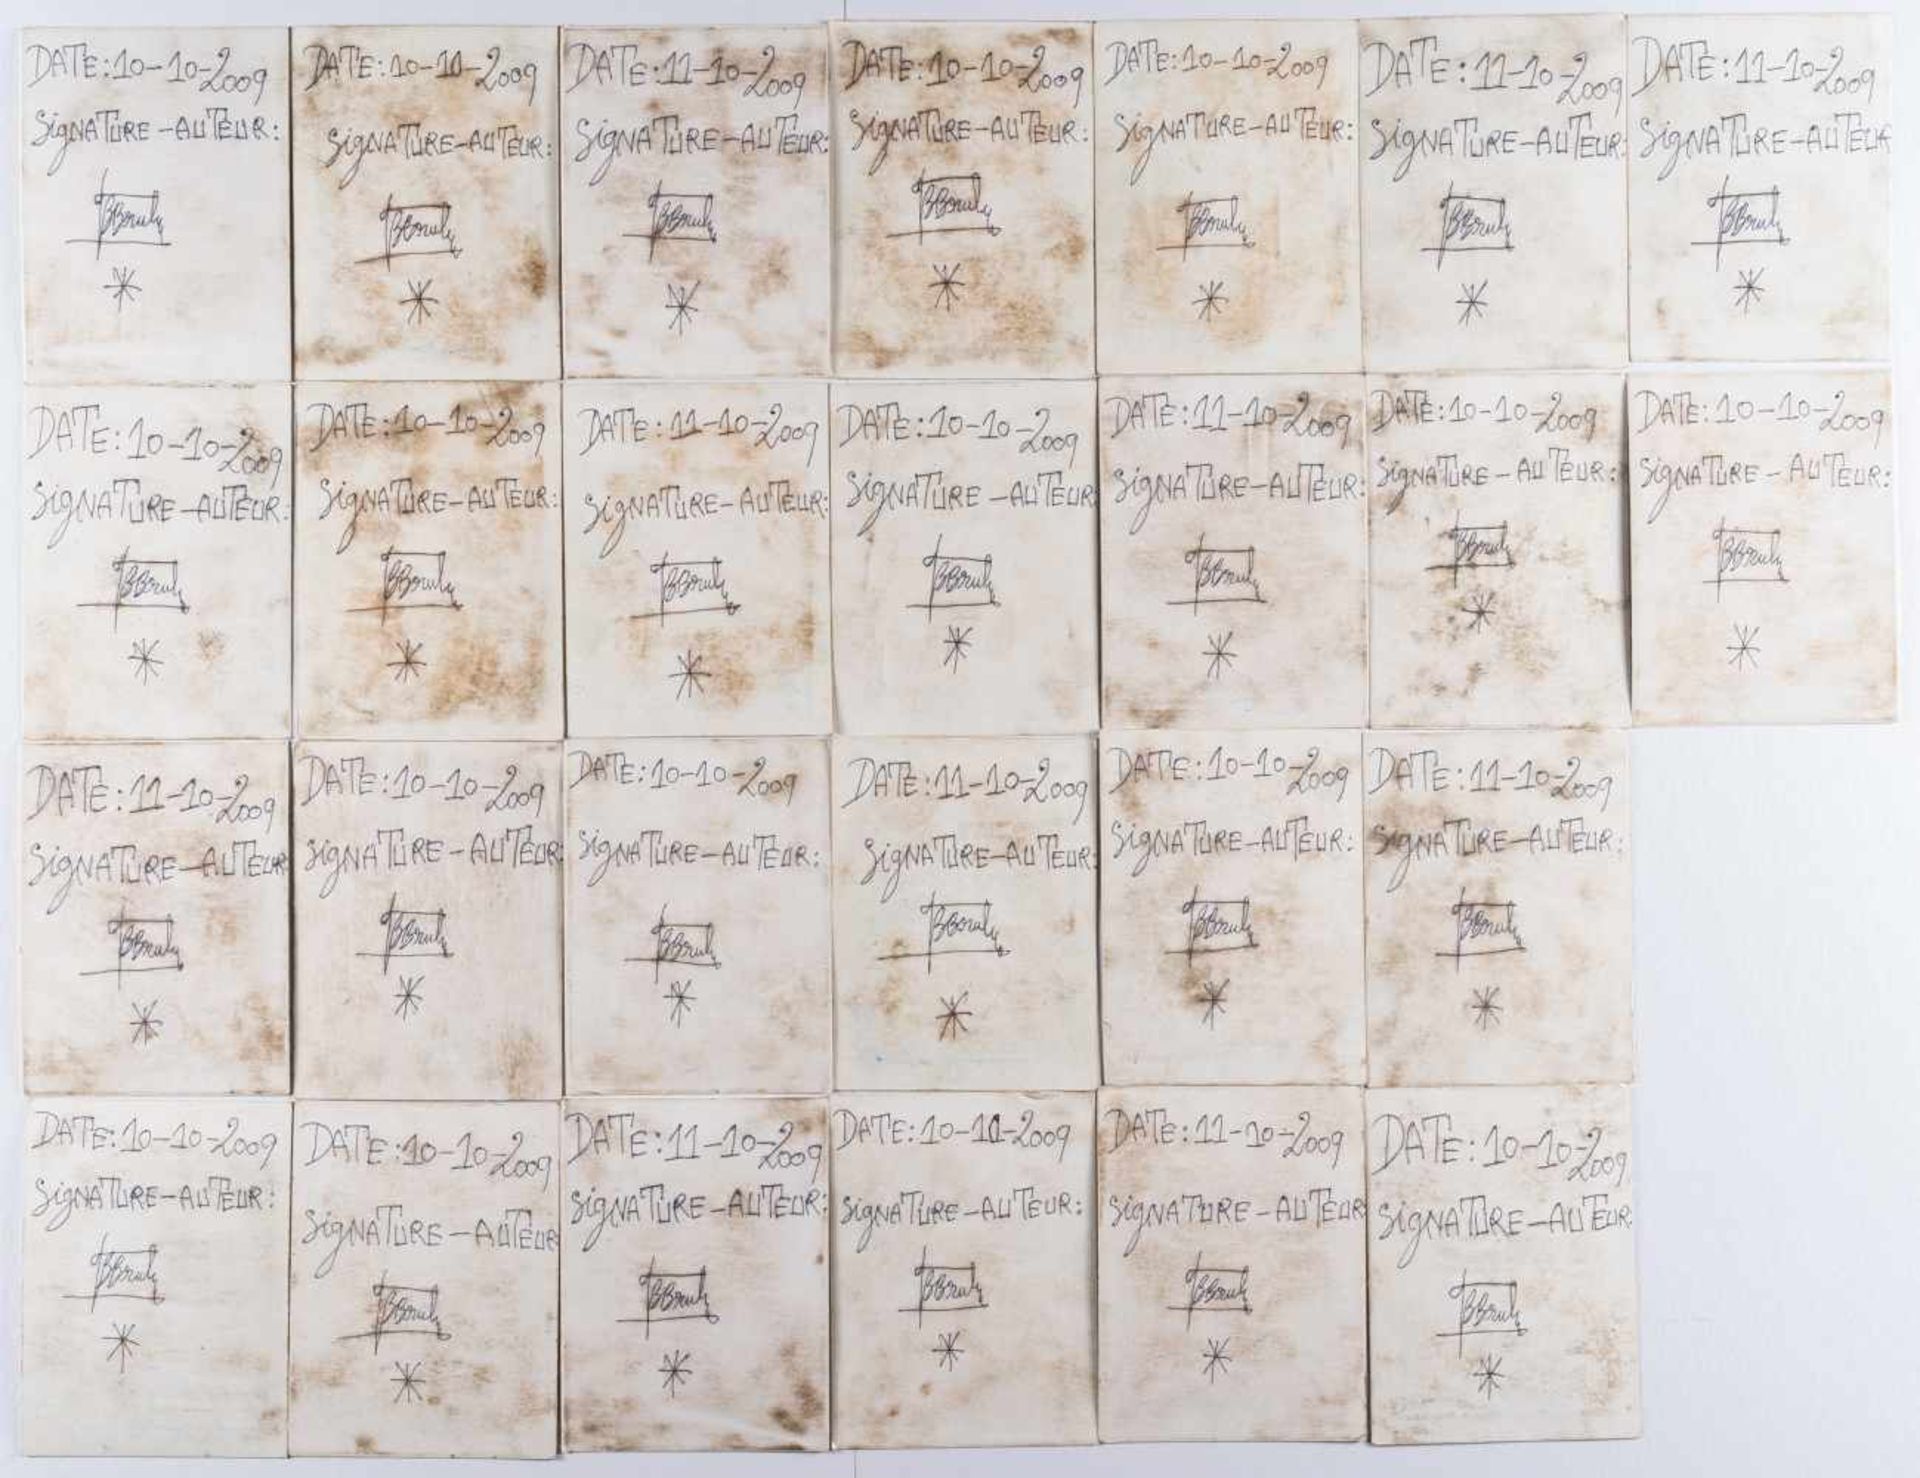 DATE:10-10-2009
SigNATURE-AUTEUR:
BBouh
DATE:10-11-2009
SigNATURE-AUTEUR:
BBouh
DATE:11-10-2009
SigNATURE-AUTEUR:
BBouh
DATE:10-10-2009
SigNATURE-AUTEUR:
BBouh
DATE:10-10-2009
SigNATURE-AUTEUR:
BBouh
DATE:11-10-2009
SigNATURE-AUTEUR:
BBouh
DATE:11-10-2009
SigNATURE-AUTEUR
BBouh
DATE:10-10-2009
SigNATURE-AUTEUR:
BBouh
DATE:10-10-2009
SigNATURE-AUTEUR:
BBouh
DATE:11-10-2009
SigNATURE-AUTEUR:
BBouh
DATE:10-10-2009
SigNATURE-AUTEUR
BBouh
DATE:11-10-2009
SigNATURE-AUTEUR:
BBouh
DATE:10-10-2009
SigNATURE-AUTEUR:
BBouh
DATE:10-10-2009
SigNATURE-AUTEUR:
BBouh
DATE:11-10-2009
SigNATURE-AUTEUR
BBouh
DATE:10-10-2009
SigNATURE-AUTEUR
BBouh
DATE:10-10-2009
SigNATURE-AUTEUR:
BBouh
DATE:11-10-2009
SigNATURE-AUTEUR:
BBouh
DATE:10-10-2009
SigNATURE-AUTEUR:
BBouh
DATE:11-10-2009
SigNATURE-AUTEUR:
BBouh
DATE:10-10-2009
SigNATURE-AUTEUR:
BBouh
DATE:10-10-2009
SigNATURE-AUTEUR
BBouh
DATE:11-10-2009
SigNATURE-AUTEUR:
BBouh
DATE:10-10-2009
SigNATURE-AUTEUR:
BBouh
DATE:11-10-2009
SigNATURE-AUTEUR
BBouh
DATE:10-10-2009
SigNATURE-AUTEUR
BBouh